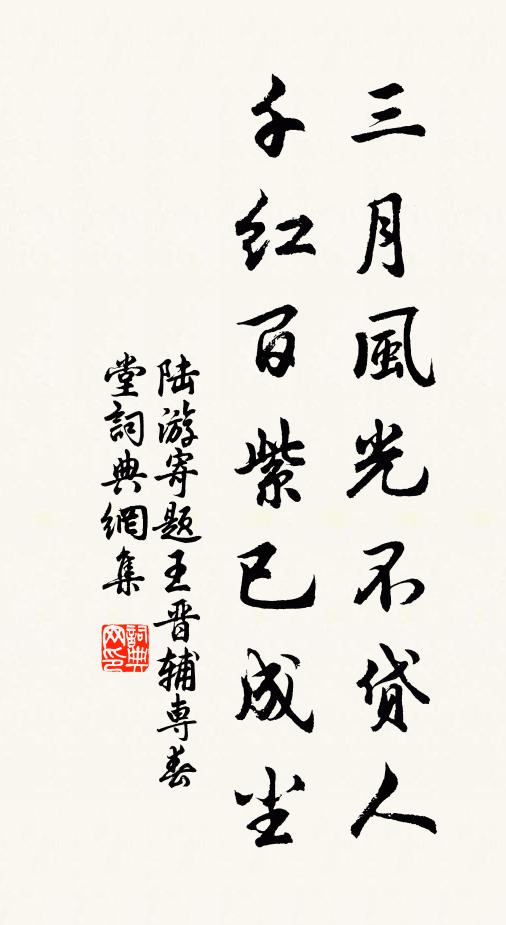 三月風光不贷人
千红百紫已成尘
陆游寄题王晋辅専春
堂詞典網集
詞典网印